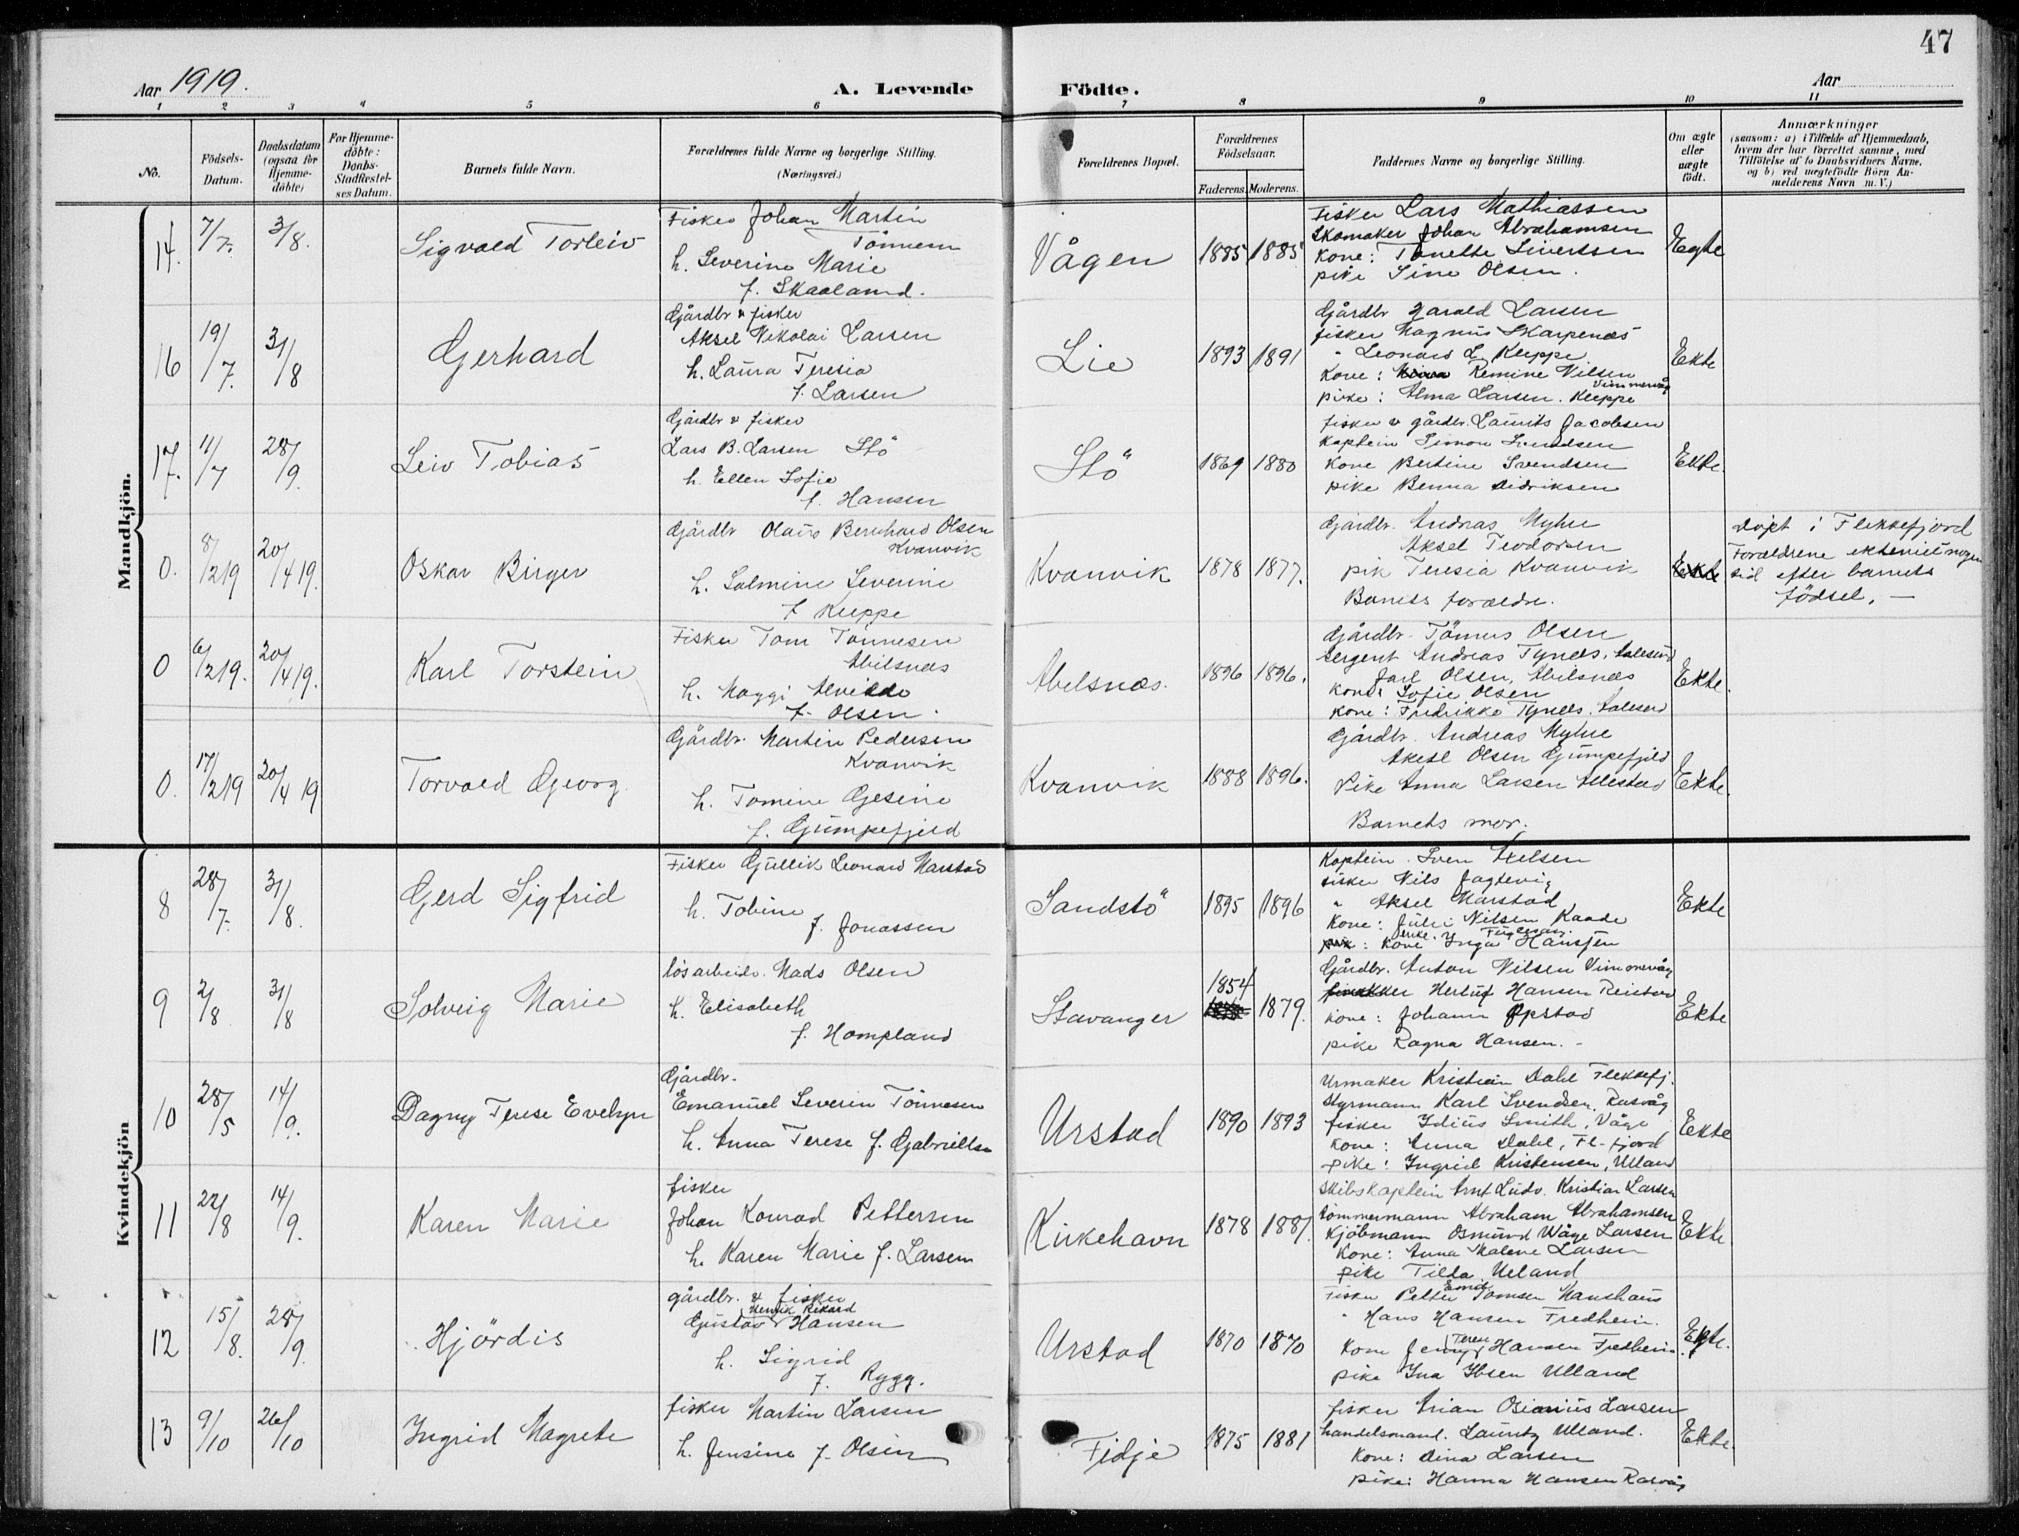 47
Aar 1919.
A. Levende Födte.
Aar
1 2 3 4 5 6 7 8 9 10 11
No.
Födsels-Datum.
Daabsdatum (ogsaa for Hjemme-döbte)
For Hjemme-döbte: Daabs-Stadfæstel-ses Datum.
Barnets fulde Navn.
Forældrenes fulde Navne og borgerlige Stilling.
(Næringsvei.)
Forældrenes Bopæl.
Forældrenes Födselsaar.
Faderens. Moderens.
Faddernes Navne og borgerlige Stilling.
Om ægte eller uægte födt.
Anmærkninger
(saasom: a) i Tilfælde af Hjemmedaab,
hvem der har forrettet samme, med
Tilföielse af to Daabsvidners Navne,
og b) ved uægtefödte Börn An-
melderens Navn m. V.)
Mandkjön.
14. 7/7. 3/8. Sigvald Torleiv
Fisker Johan Martin
Tönnesen
h. Severine Marie
f. Skaaland.
Vågen 1885 1885
Fisker Lars Mathiassen
Skomaker Johan Abrahamsen
Kone: Tonette Sivertsen
pike Sine Olsen.
Egte
16 19/7. 31/8 Gerhard
Gårdbr & fisker
Aksel Nikolai Larsen
h. Laura Teresia
f. Larsen
Lie 1893 1891
Gårdbr Harald Larsen
fisker Magnus Skarpenæs
" Leonard L. Kleppe
Kone: Remine Nilsen
Vimmervåg
pike: Alma Larsen. Kleppe
Ekte
17. 11/7 28/9. Leiv Tobias
Gårdbr & fisker
Lars B. Larsen Stö
h. Ellen Sofie
f. Hansen
Stö 1869 1880
fisker & gårdbr. Laurits Jacobsen
Kaptein Simon Svendsen
Kone Bertine Svendsen
pike Benna Didriksen
Ekte.
0. 8/2 19 20/4 19. Oskar Birger
Gårdbr Olaus Bernhard Olsen
Kvanvik
h. Salmine Severine
f. Kleppe
Kvanvik 1878 1877.
Gårdbr. Andreas Myhre
Aksel Teodorsen
pik Teresia Kvanvik
Barnets foreldre.
Ekte
Døpt i Flekkefjord
Forældrene ekteviet nogen
tid efter barnets
födsel. —
0 6/2 19. 20/4 19. Karl Torstein
Fisker Tom Tönnesen
Abelsnæs
h. Maggi Alvilde
f. Olsen.
Abelsnæs. 1896 1896.
Gårdbr. Tönnes Olsen
Sergent Andreas Tynes, Aalesund
Jarl Olsen, Abelsnæs
Kone: Sofie Olsen
Kone: Fredrikke Tynes. Aalesund
Ekte.
0. 17/2 19 20/4 19 Torvald Georg.
Gårdbr. Martin Pedersen
Kvanvik
h. Tomine Gesine
f. Gjumpefjeld
Kvanvik 1888 1896.
Gårdbr. Andreas Myhre
Aksel Olsen Gjumpefjeld
Pike Anna Larsen Allestad
Barnets mor.
Ekte.
Kvindekjön
8 28/7. 31/8. Gerd Sigfrid
Fisker Gullik Leonard Marstad
h. Tobine
f. Jonassen
Sandstö 1895 1896
Kaptein. Sven Axelsen
fisker Nils Jagtevig
" Aksel Marstad
Kone: Juli Nilsen Raade
: Kone Inga Hansen
Ekte
9 2/8 31/8 Solveig Marie
lösarbeider. Mads Olsen
h. Elisabeth
f. Hompland
Stavanger 1854 1879.
Gårdbr. Anton Nilsen Vimmervåg
Herluf Hansen Reistad
Kone: Johann Opstad
pike Ragna Hansen. -
Ekte
10 28/5 14/9. Dagny Terese Evelyn
Gårdbr.
Emanuel Severin Tönnesen
h. Anna Terese f. Gabrielsen
Urstad 1890 1893
Urmaker Kristian Dahl Flekkefj.
Styrmann Karl Svendsen, Rasvåg
fisker Idius Smith, Våge
Kone: Anna Dahl, Fl-fjord
pike: Ingrid Kristensen, Ulland
Ekte
11 22/8 14/9. Karen Marie
fisker
Johan Konrad Pettersen
h. Karen Marie f. Larsen
Kirkehavn 1878 1881.
Skibskaptein Arnt Ludv. Kristian Larsen
tömmermann Abraham Abrahamsen
Kjöbmann Osmund Våge Larsen
Kone: Anna Malene Larsen
pike Tilda Ueland
Ekte
12 15/8. 28/9. Hjördis
gårdbr. & fisker
Henrik Rikard
Gustav Hansen
h. Sigrid
f. Rygg.
Urstad 1870 1870
Emil
Fisker Petter Tomsen Hanshaus
" Hans Hansen Fredheim.
Terese
Kone Jenny Hansen Fredheim.
pike Ina Ibsen Ulland
Ekte.
13 9/10 26/10 Ingrid Magrete
fisker Martin Larsen
h. Jensine f. Olsen
Fidje 1875 1881
fisker Arian Osianius Larsen
handelsmand. Lauritz Ulland.
Kone: Dina Larsen
pike: Hanna Hansen Rasvåg
Ekte.